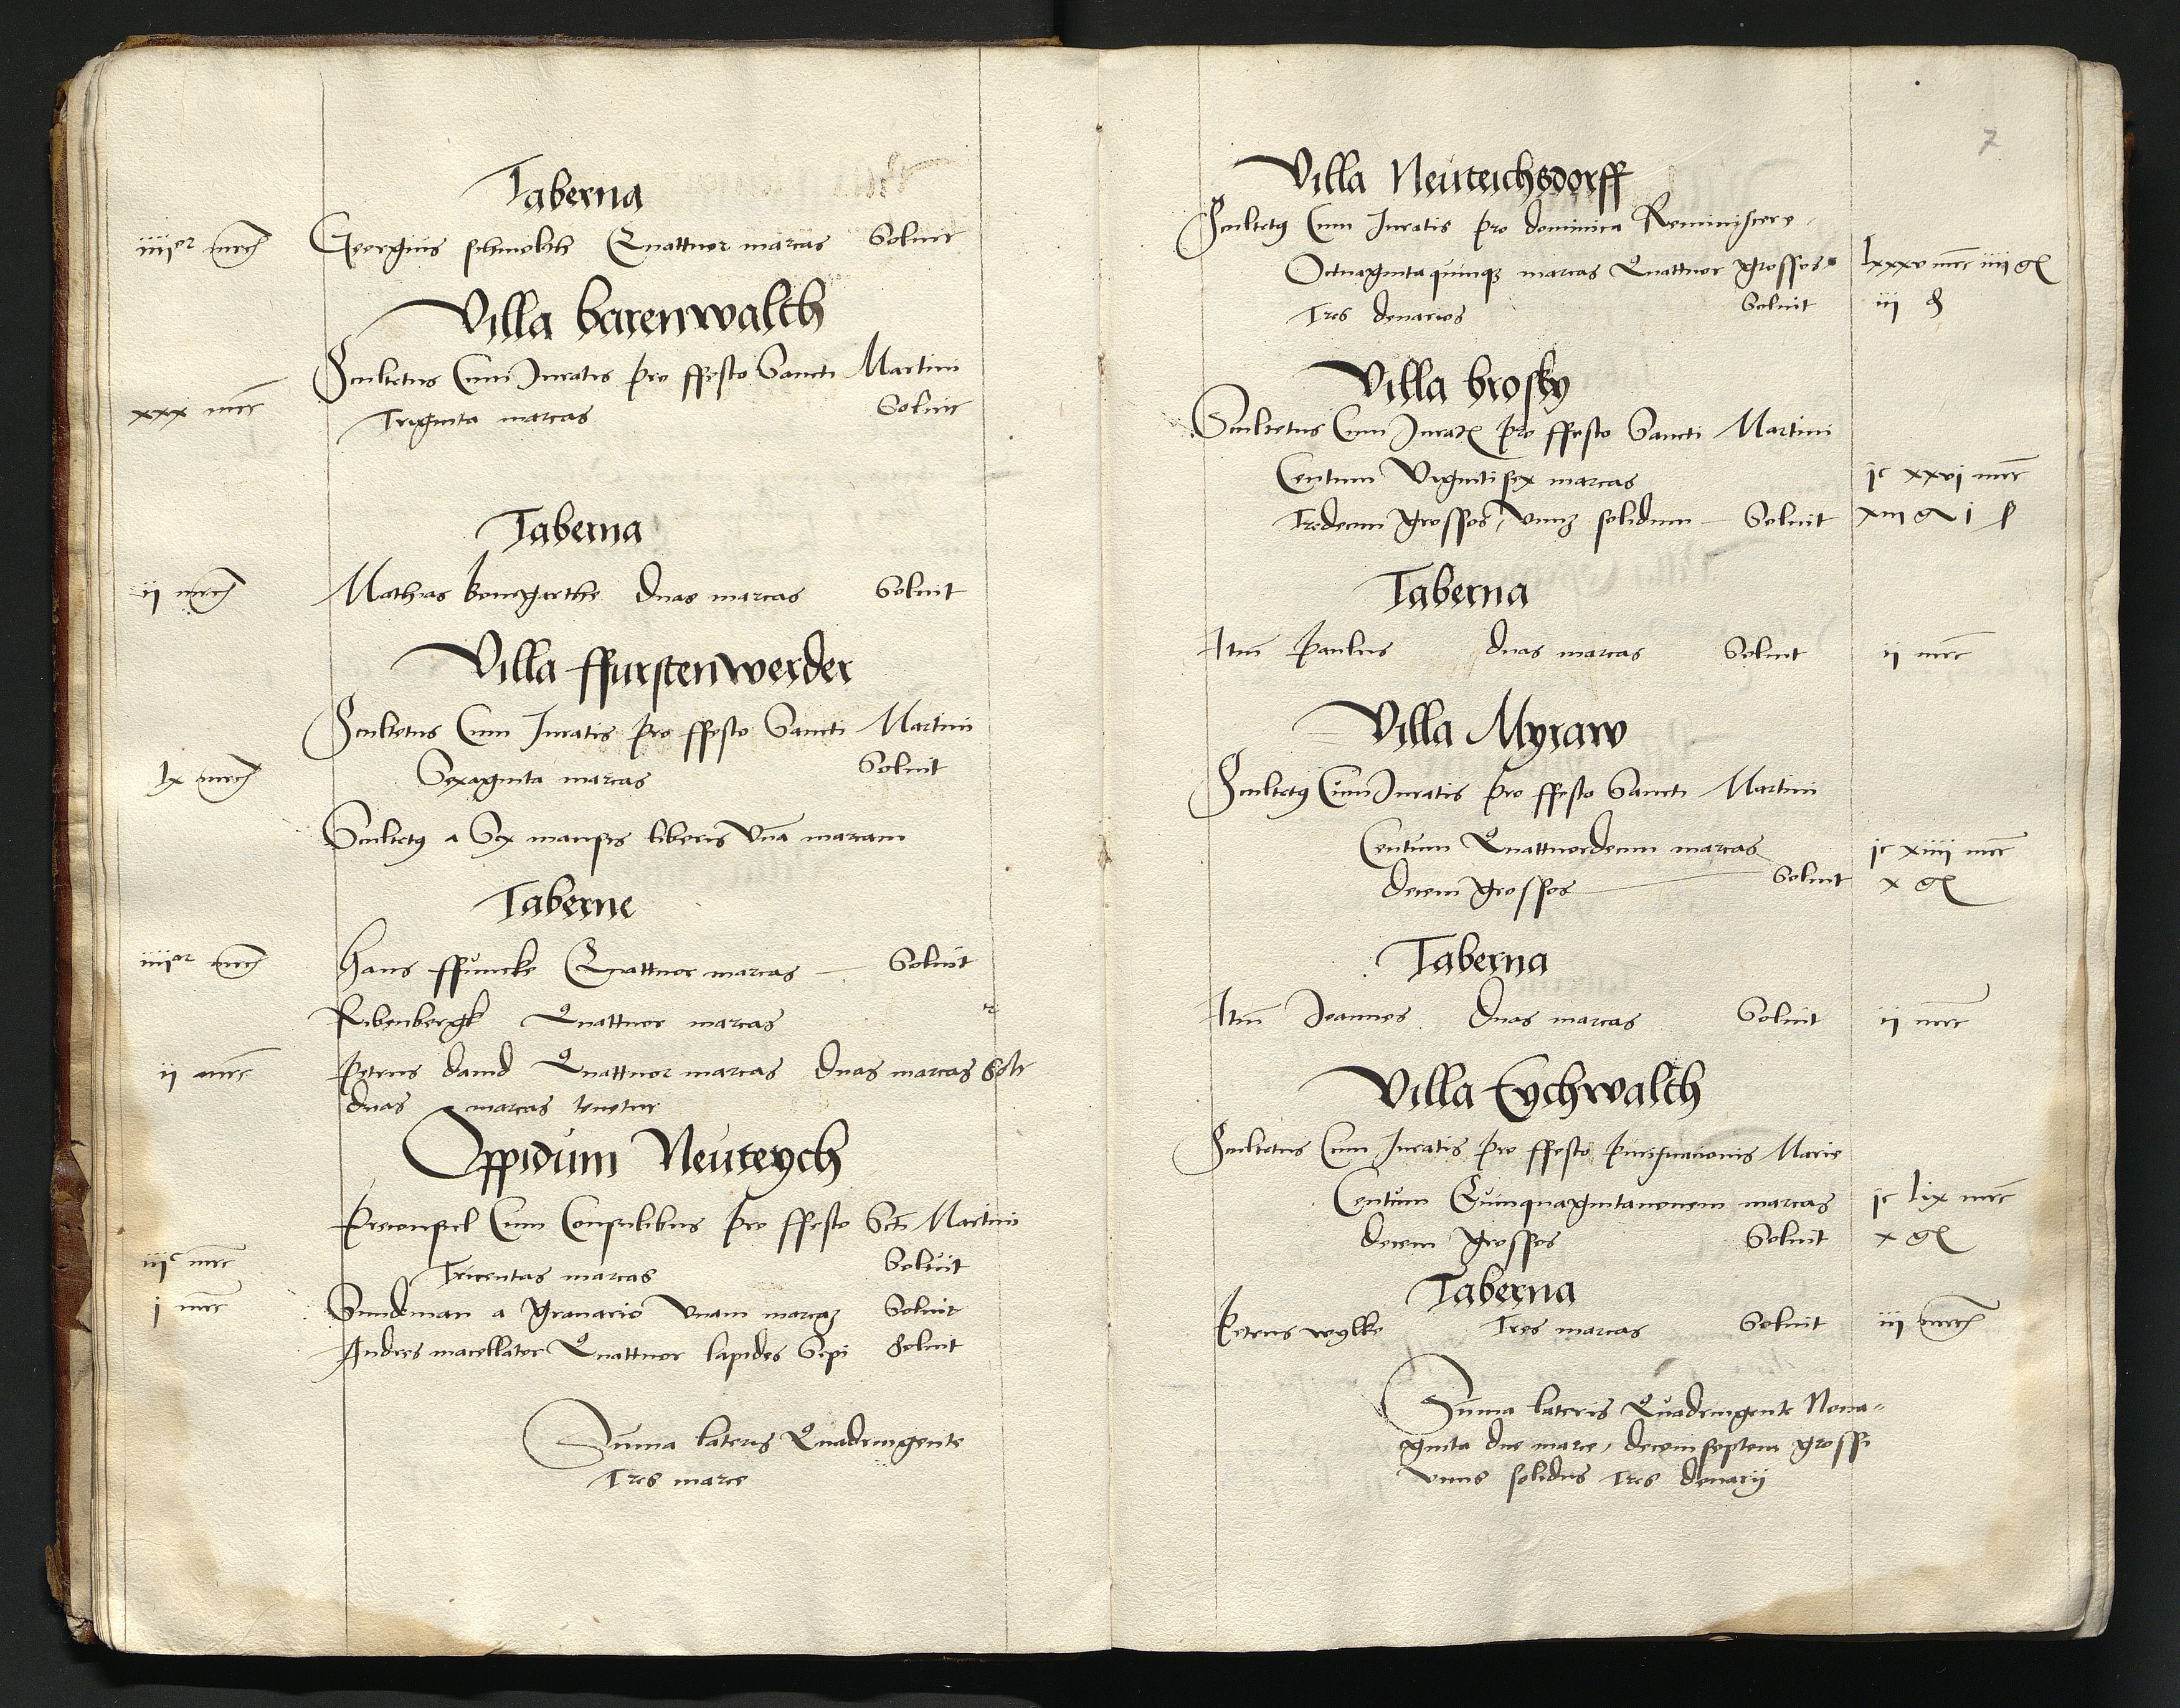 Taberna
iiiior mrc Georgius schmolck Quattuor marcas Soluit
Villa barenwalth
Scultetus Cum Juratis pro ffesto Sancti Martini
xxx mrc Triginta marcas Soluit
Taberna
ij mrc Mathias bomgarthe duas marcas Soluit
Villa ffurstenwerder
Scultetus Cum Juratis pro ffesto Sancti Martini
lx mrc Sexaginta marcas Soluit
Scultetus a Sex mansis liberis Vna marcam
Taberne
iiiior mrc Hans ffuncke Quattuor marcas Soluit
Ribenbergk Quattuor marcas
ij mrc Petrus dauid Quattuor marcas duas marcas solt
duas marcas tenetur
Oppidum Neuteych
Preconsul Cum Consulibus pro ffesto Scti Martini
iijc mrc Tricentas marcas Soluit
i mrc Sundeman a granario Vnam marcaz Soluit
Andres macellator Quattuor lapides Sepi soluit
Suma lateris Quadringente
Tres marce
7
Villa Neuteichsdorff
Scultetus Cum Juratis pro dominica Reminiscere
Octuagintaquinque marcas Quattuor grossos lxxxv mrc iiij g
Tres denarios Soluit iij d
Villa brosky
Scultetus Cum Jurat pro ffesto Sancti Martini
Centum Vigintisex marcas jc xxvj mrc
Tredecim grossos, Vnuz solidum Soluit xiii g j s
Taberna
Item Paulus duas marcas Soluit ij mrc
Villa Myraw
Scultetus Cum Juratis pro ffesto Sancti Martini
Centum Quattuordecim marcas jc xiiij mrc
decem grossos Soluit x g
Taberna
Item Joannes duas marcas Soluit ij mrc
Villa Eychwalth
Scultetus Cum Juratis pro ffesto purificacionis Marie
Centum Quinquagintanouem marcas jc lix mrc
decem grossos Soluit x g
Taberna
Petrus wylke Tres marcas Soluit iij mrc
Suma lateris Quadringente Nona-
ginta due marce, decemseptem grossi
vnus solidus Tres denarij